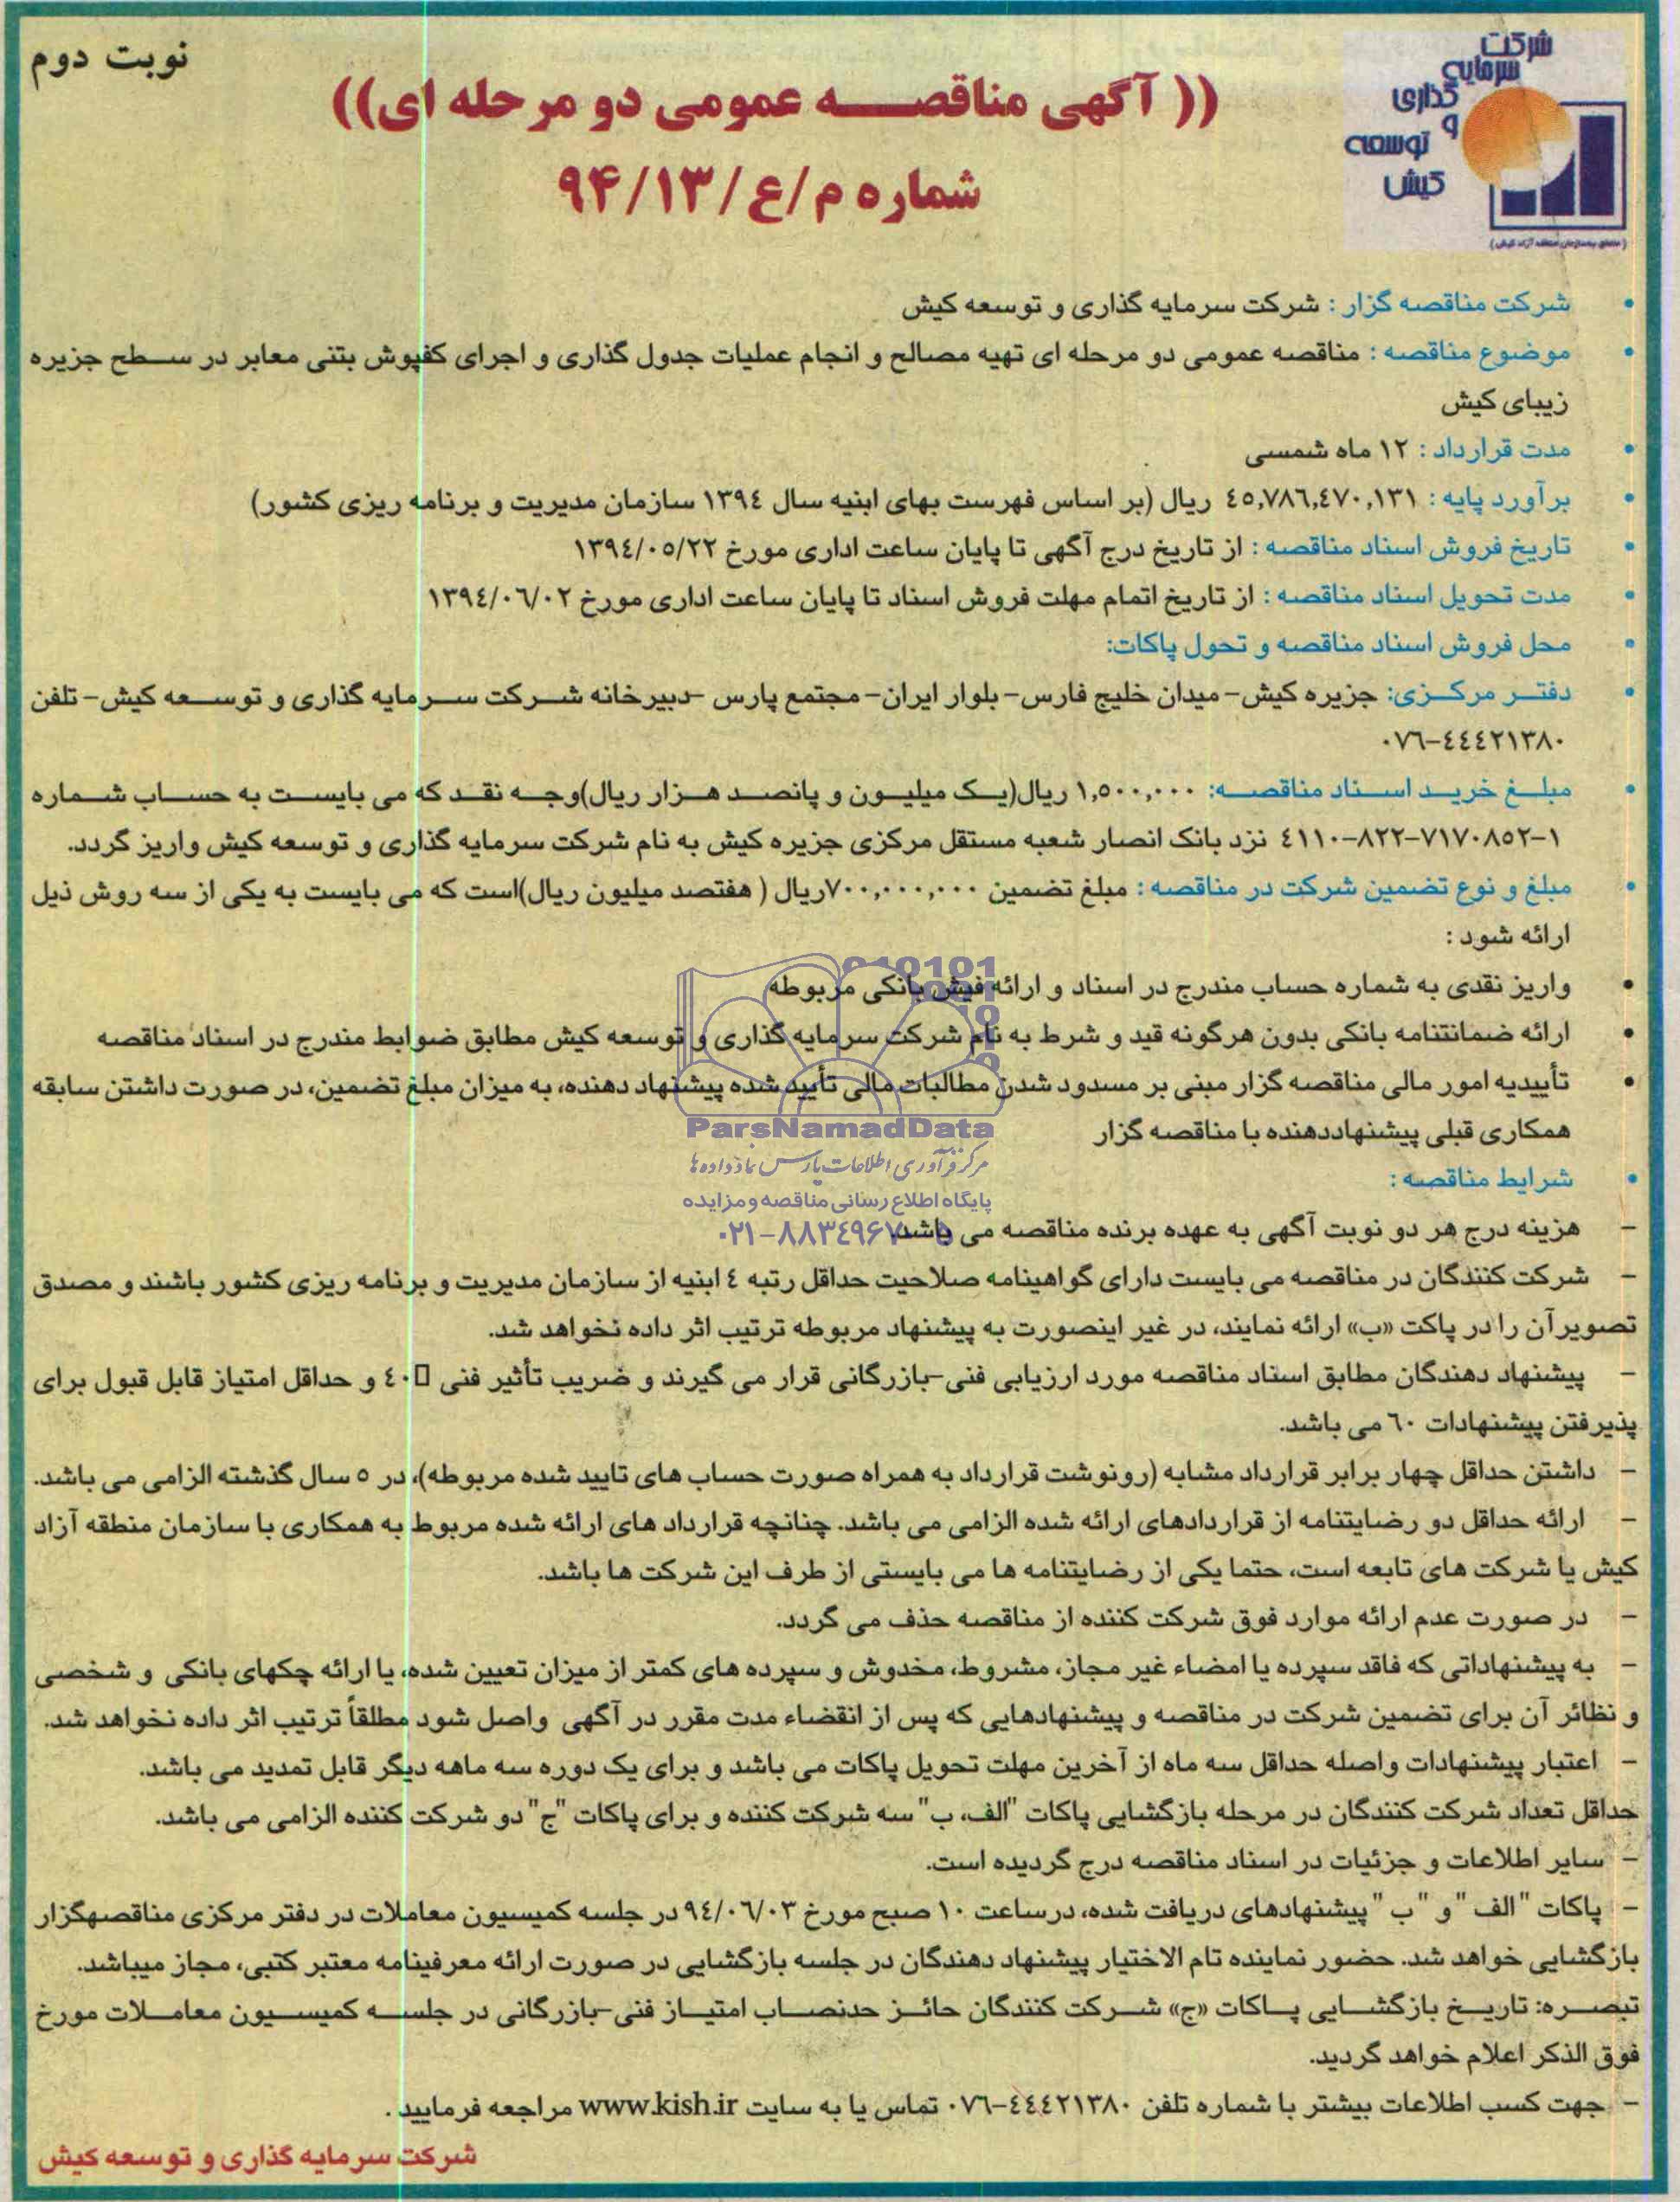 نوبت دوم
شرکت
سرمایه
گذاری
و
توسعه
کیش
(( آگهی مناقصه عمومی دو مرحله ای))
شماره م/ع/۹۴/۱۳
• شرکت مناقصه گزار : شرکت سرمایه گذاری و توسعه کیش
• موضوع مناقصه : مناقصه عمومی دو مرحله ای تهیه مصالح و انجام عملیات جدول گذاری و اجرای کفپوش بتنی معابر در سطح جزیره
زیبای کیش
• مدت قرارداد : ۱۲ ماه شمسی
• برآورد پایه : ٤٥,٧٨٦,٤٧٠,١٣١ ریال (بر اساس فهرست بهای ابنیه سال ١٣٩٤ سازمان مدیریت و برنامه ریزی کشور)
• تاریخ فروش اسناد مناقصه : از تاریخ درج آگهی تا پایان ساعت اداری مورخ ١٣٩٤/٠٥/٢٢
• مدت تحویل اسناد مناقصه : از تاریخ اتمام مهلت فروش اسناد تا پایان ساعت اداری مورخ ١٣٩٤/٠٦/٠٢
• محل فروش اسناد مناقصه و تحول پاکات:
• دفتر مرکزی: جزیره کیش- میدان خلیج فارس- بلوار ایران- مجتمع پارس -دبیرخانه شرکت سرمایه گذاری و توسعه کیش- تلفن
٠٧٦-٤٤٤٢١٣٨٠
• مبلغ خرید اسناد مناقصه: ١,٥٠٠,٠٠٠ ریال(یک میلیون و پانصد هزار ریال)وجه نقد که می بایست به حساب شماره
٤١١٠-٨٢٢-٧١٧٠٨٥٢-١ نزد بانک انصار شعبه مستقل مرکزی جزیره کیش به نام شرکت سرمایه گذاری و توسعه کیش واریز گردد.
• مبلغ و نوع تضمین شرکت در مناقصه : مبلغ تضمین ٧٠٠,٠٠٠,٠٠٠ریال ( هفتصد میلیون ریال)است که می بایست به یکی از سه روش ذیل
ارائه شود :
• واریز نقدی به شماره حساب مندرج در اسناد و ارائه فیش بانکی مربوطه
• ارائه ضمانتنامه بانکی بدون هرگونه قید و شرط به نام شرکت سرمایه گذاری و توسعه کیش مطابق ضوابط مندرج در اسناد مناقصه
• تأییدیه امور مالی مناقصه گزار مبنی بر مسدود شدن مطالبات مالی تأیید شده پیشنهاد دهنده، به میزان مبلغ تضمین، در صورت داشتن سابقه
همکاری قبلی پیشنهاددهنده با مناقصه گزار
ParsNamadData
مرکز فرآوری اطلاعات پارس نماد داده ها
پایگاه اطلاع رسانی مناقصه و مزایده
• شرایط مناقصه :
- هزینه درج هر دو نوبت آگهی به عهده برنده مناقصه می باشد.
- شرکت کنندگان در مناقصه می بایست دارای گواهینامه صلاحیت حداقل رتبه ٤ ابنیه از سازمان مدیریت و برنامه ریزی کشور باشند و مصدق
تصویرآن را در پاکت «ب» ارائه نمایند، در غیر اینصورت به پیشنهاد مربوطه ترتیب اثر داده نخواهد شد.
- پیشنهاد دهندگان مطابق اسناد مناقصه مورد ارزیابی فنی-بازرگانی قرار می گیرند و ضریب تأثیر فنی ٤٠ و حداقل امتیاز قابل قبول برای
پذیرفتن پیشنهادات ٦٠ می باشد.
- داشتن حداقل چهار برابر قرارداد مشابه (رونوشت قرارداد به همراه صورت حساب های تایید شده مربوطه)، در ٥ سال گذشته الزامی می باشد.
- ارائه حداقل دو رضایتنامه از قراردادهای ارائه شده الزامی می باشد. چنانچه قرارداد های ارائه شده مربوط به همکاری با سازمان منطقه آزاد
کیش یا شرکت های تابعه است، حتما یکی از رضایتنامه ها می بایستی از طرف این شرکت ها باشد.
- در صورت عدم ارائه موارد فوق شرکت کننده از مناقصه حذف می گردد.
- به پیشنهاداتی که فاقد سپرده یا امضاء غیر مجاز، مشروط، مخدوش و سپرده های کمتر از میزان تعیین شده، یا ارائه چکهای بانکی و شخصی
و نظائر آن برای تضمین شرکت در مناقصه و پیشنهادهایی که پس از انقضاء مدت مقرر در آگهی واصل شود مطلقاً ترتیب اثر داده نخواهد شد.
- اعتبار پیشنهادات واصله حداقل سه ماه از آخرین مهلت تحویل پاکات می باشد و برای یک دوره سه ماهه دیگر قابل تمدید می باشد.
حداقل تعداد شرکت کنندگان در مرحله بازگشایی پاکات "الف، ب" سه شرکت کننده و برای پاکات "ج" دو شرکت کننده الزامی می باشد.
- سایر اطلاعات و جزئیات در اسناد مناقصه درج گردیده است.
- پاکات "الف "و "ب "پیشنهادهای دریافت شده، درساعت ١٠ صبح مورخ ٩٤/٠٦/٠٣ در جلسه کمیسیون معاملات در دفتر مرکزی مناقصهگزار
بازگشایی خواهد شد. حضور نماینده تام الاختیار پیشنهاد دهندگان در جلسه بازگشایی در صورت ارائه معرفینامه معتبر کتبی، مجاز میباشد.
تبصره: تاریخ بازگشایی پاکات «ج» شرکت کنندگان حائز حدنصاب امتیاز فنی-بازرگانی در جلسه کمیسیون معاملات مورخ
فوق الذکر اعلام خواهد گردید.
- جهت کسب اطلاعات بیشتر با شماره تلفن ٠٧٦-٤٤٤٢١٣٨٠ تماس یا به سایت www.kish.ir مراجعه فرمایید .
شرکت سرمایه گذاری و توسعه کیش